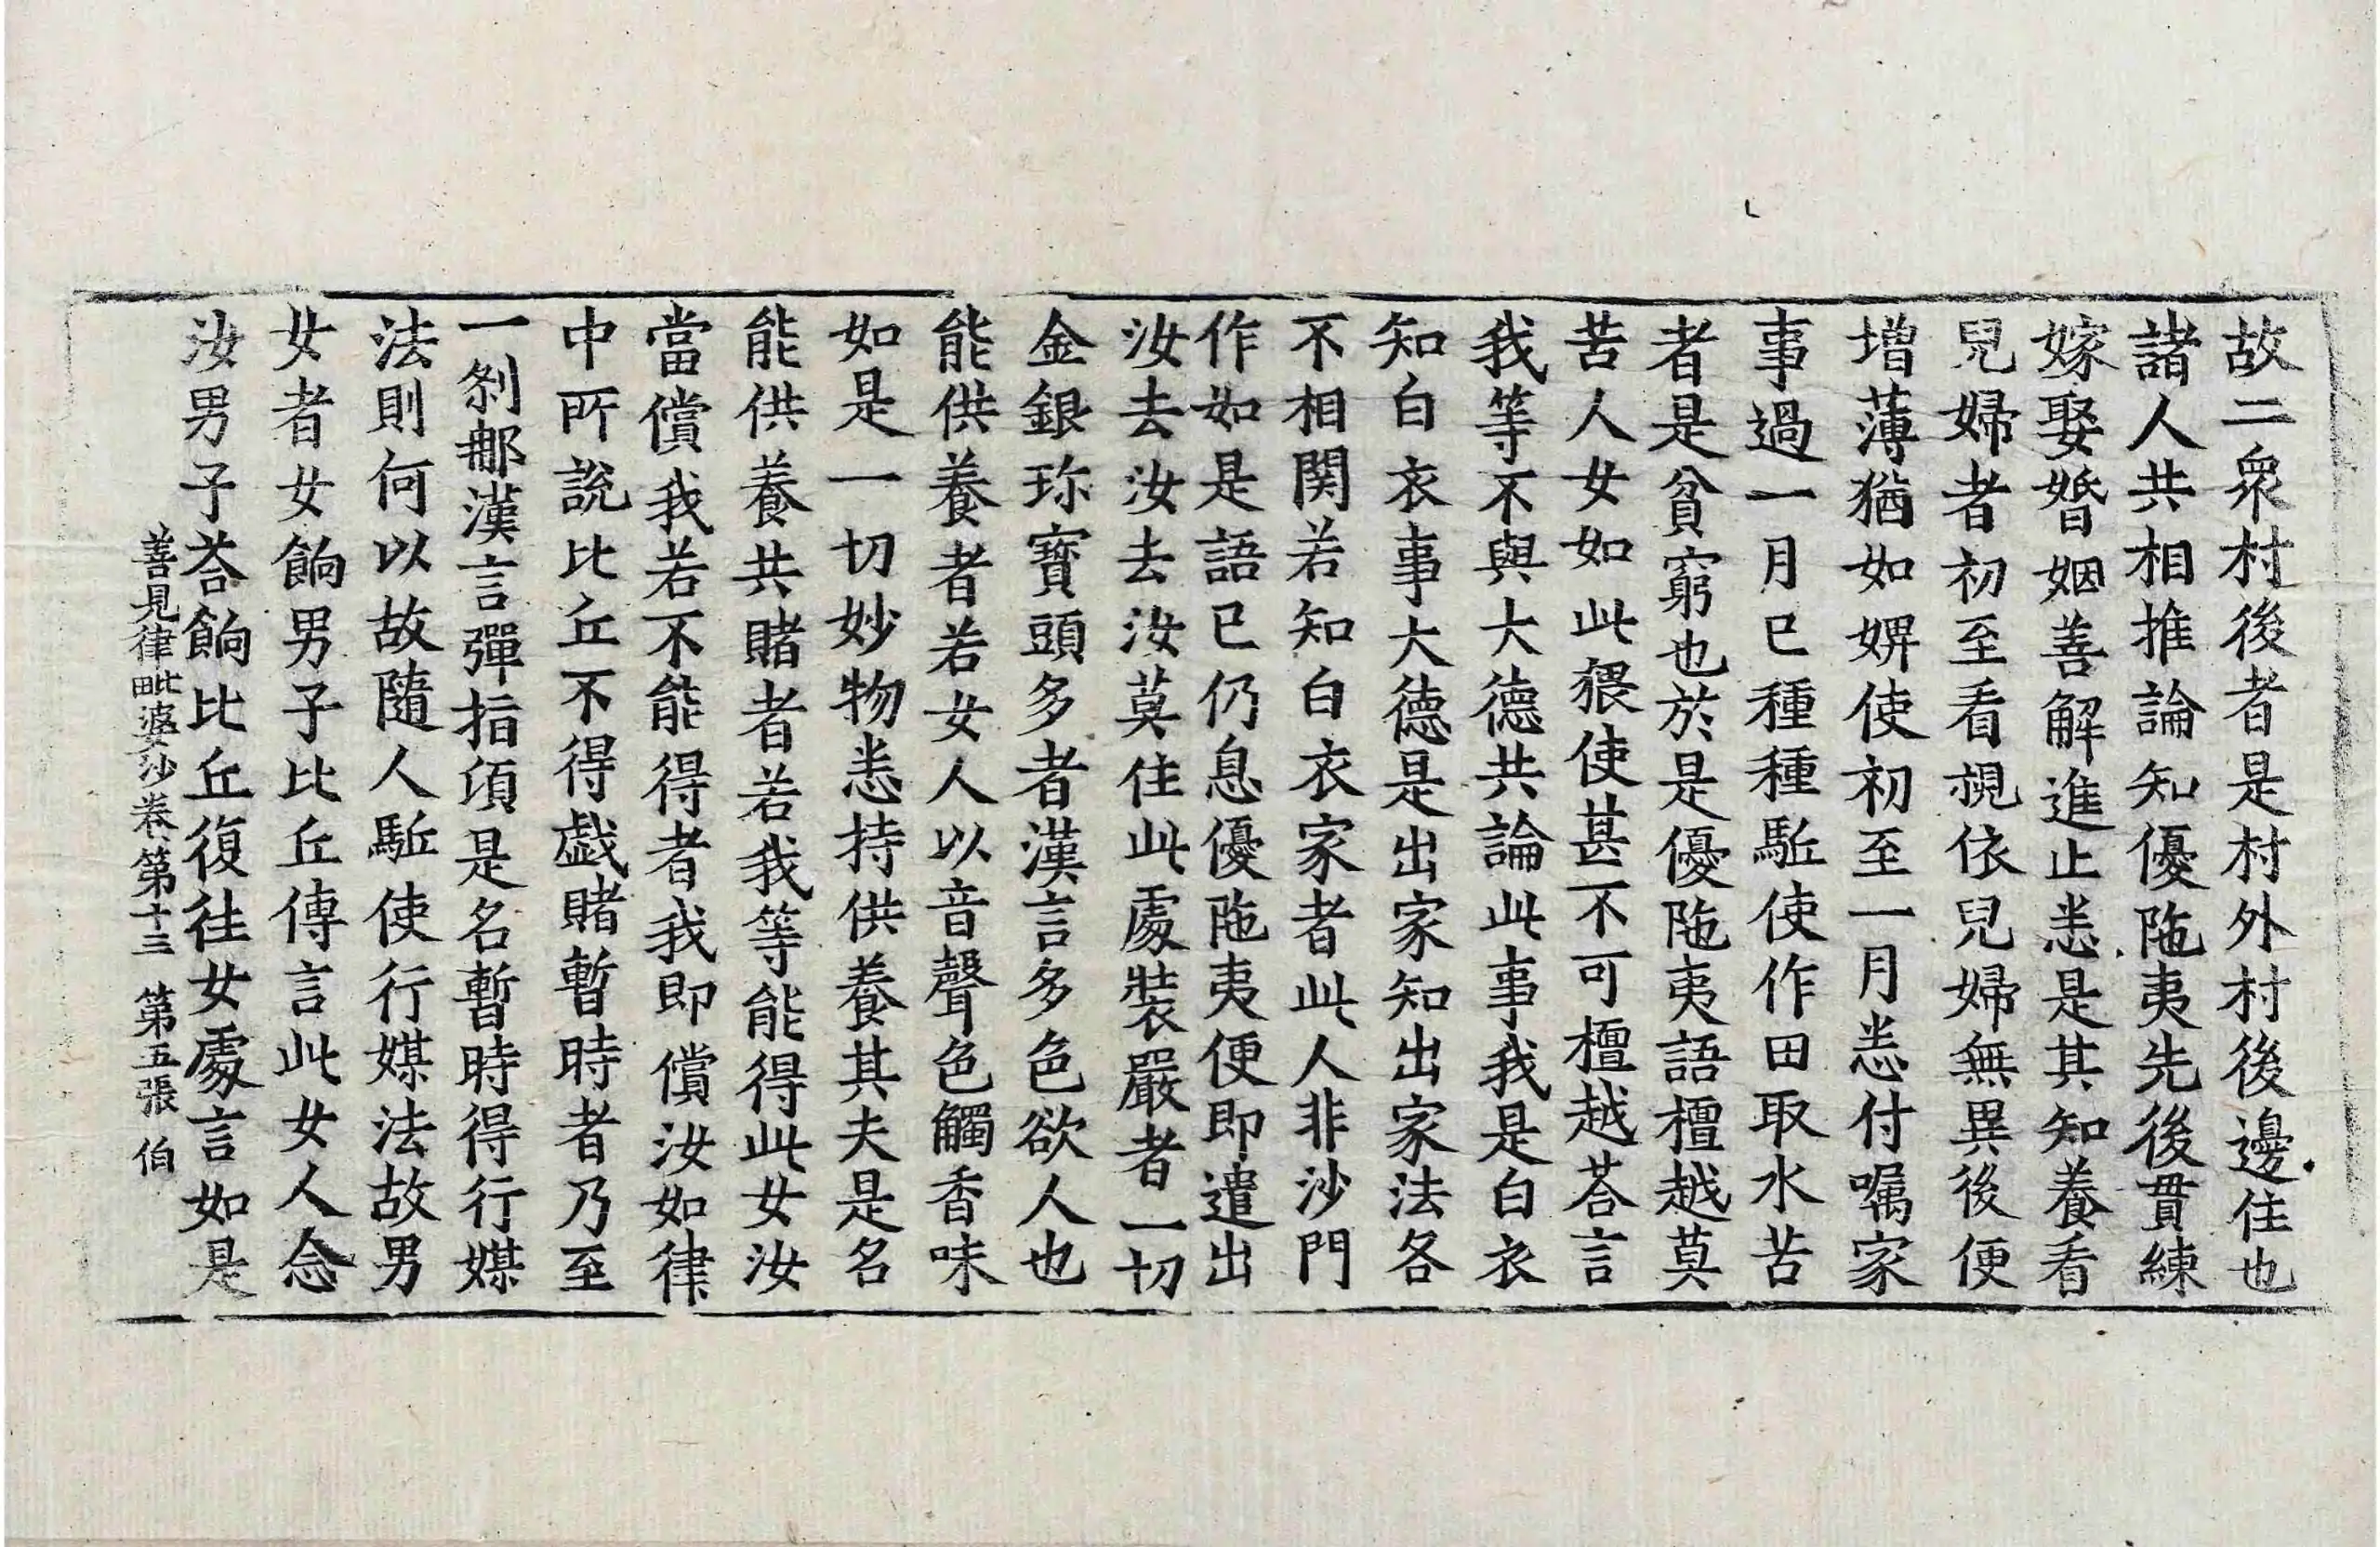 故二衆村後者是村外村後邊住也
諸人共相推論知優陁夷先後貫練
嫁娶婚姻善解進止恙是其知養看
兒婦者初至看視依兒婦無異後便
增薄猶如婢使初至一月恙付嘱家
事過一月已種種駈使作田取水苦
者是貧窮也於是優陁夷語檀越莫
苦人女如此猥使甚不可檀越荅言
我等不與大德共論此事我是白衣
知白衣事大德是出家知出家法各
不相関若知白衣家者此人非沙門
作如是語已仍息優陁夷便即遣出
汝去汝去汝莫住此處裝嚴者一切
金銀珎寳頭多者漢言多色欲人也
能供養者若女人以音聲色觸香味
如是一切妙物恙持供養其夫是名
能供養共賭者若我等能得此女汝
當償我若不能得者我即償汝如律
中所說比丘不得戯賭暫時者乃至
一剎那漢言彈指頃是名暫時得行媒
法則何以故隨人駈使行媒法故男
女者女餉男子比丘傳言此女人念
汝男子荅餉比丘復往女處言如是
善見律毗婆沙卷第十三 第五張 伯